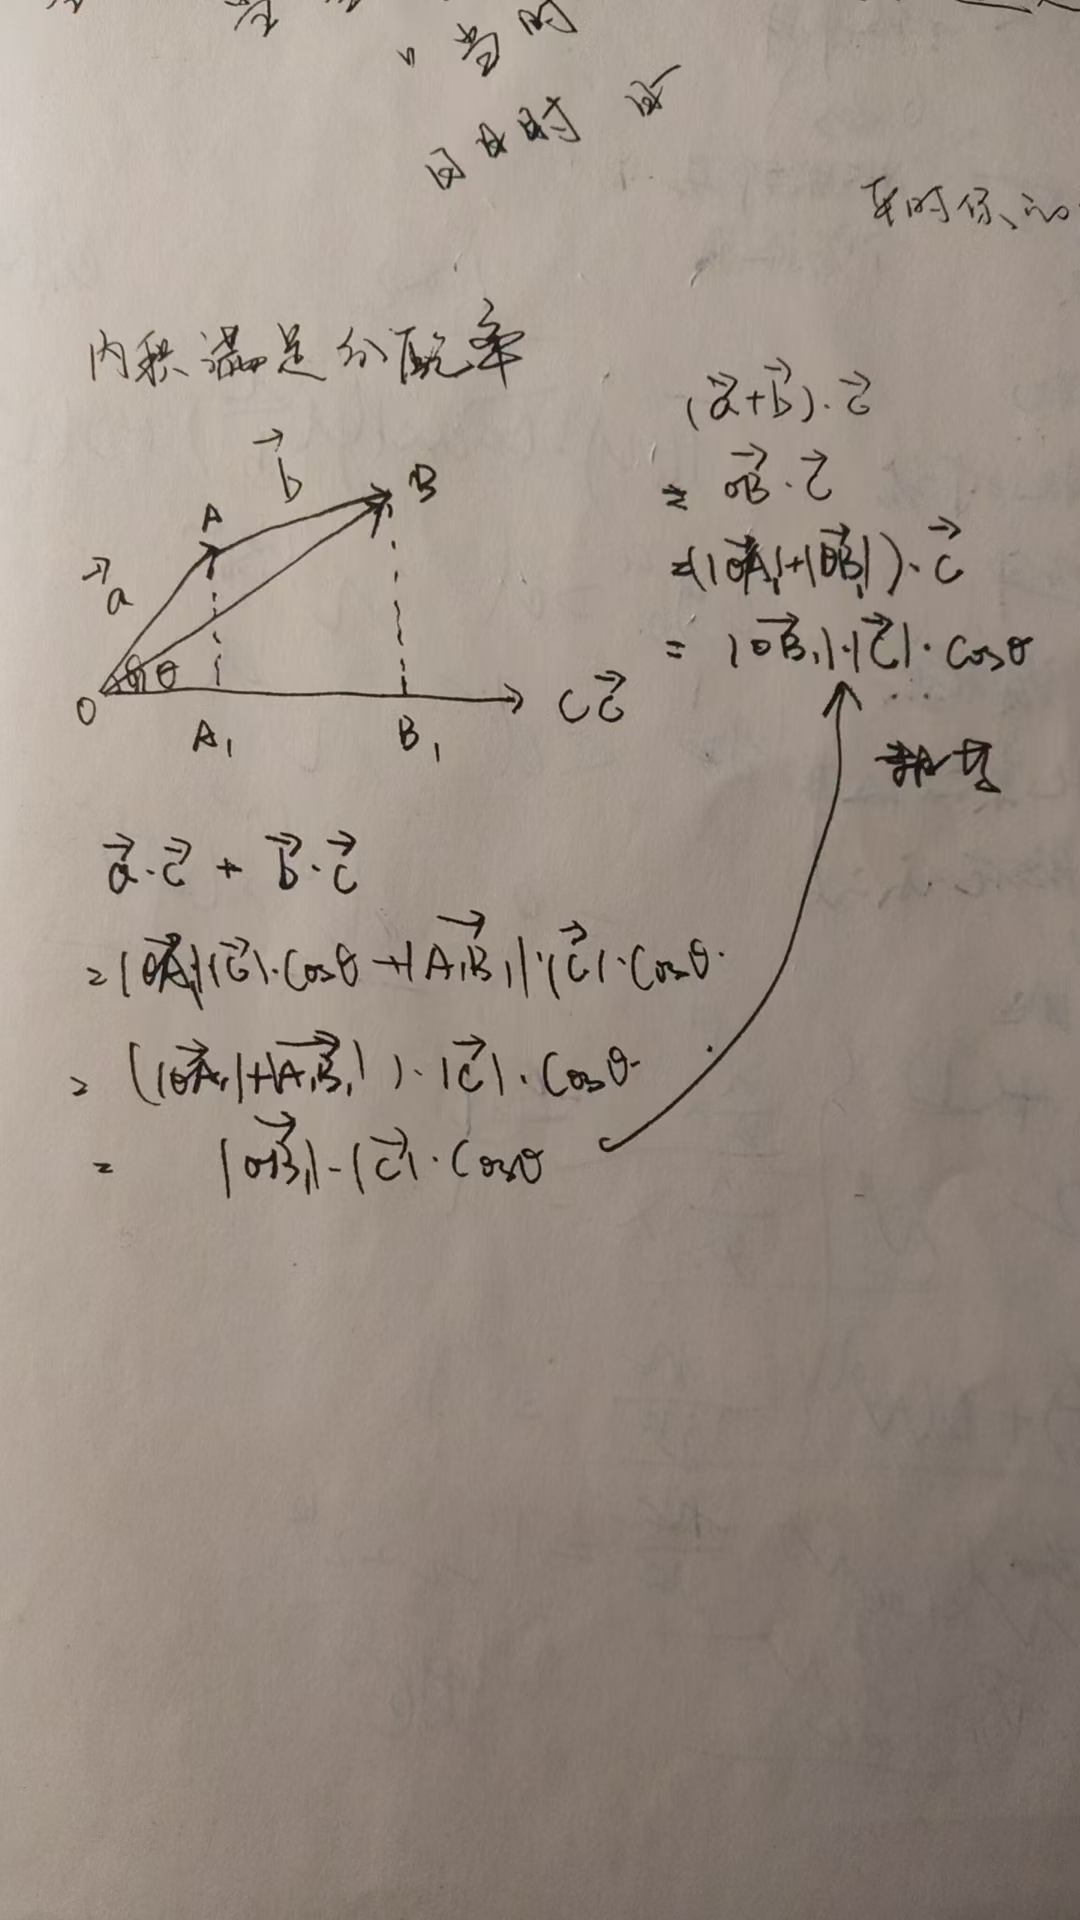 当时
时
内积满足分配率
\vec{b}
B
A
\vec{a}
θ
O
A₁
B₁
C \vec{c}
(\vec{a}+\vec{b})·\vec{c}
= \vec{OB}·\vec{c}
=(|\vec{OA₁}|+|\vec{OB₁}|)·\vec{c}
= |\vec{OB₁}|·|\vec{c}|·cosθ
\vec{a}·\vec{c} + \vec{b}·\vec{c}
=|\vec{OA₁}||\vec{c}|·cosθ+|\vec{A₁B₁}|·|\vec{c}|·cosθ
= (|\vec{OA₁}|+|\vec{A₁B₁}|)·|\vec{c}|·cosθ
= |\vec{OB₁}|·|\vec{c}|·cosθ